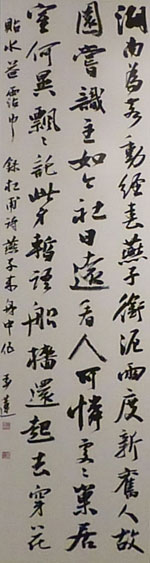 湖南為客動經春燕子銜泥兩度新舊入故
園嘗識主如今社日遠看人可憐處〻巢居
室何異飄〻託此身暫語船檣還起去穿花
貼水益霑巾 錄杜甫詩燕子來舟中作